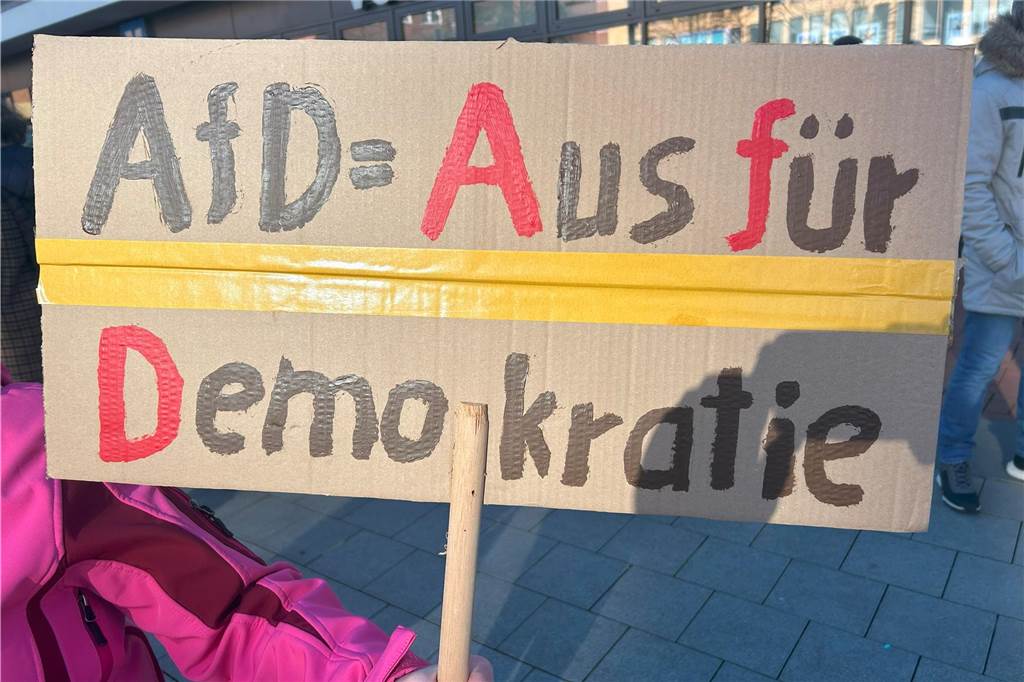 AfD= Aus für
Demokratie